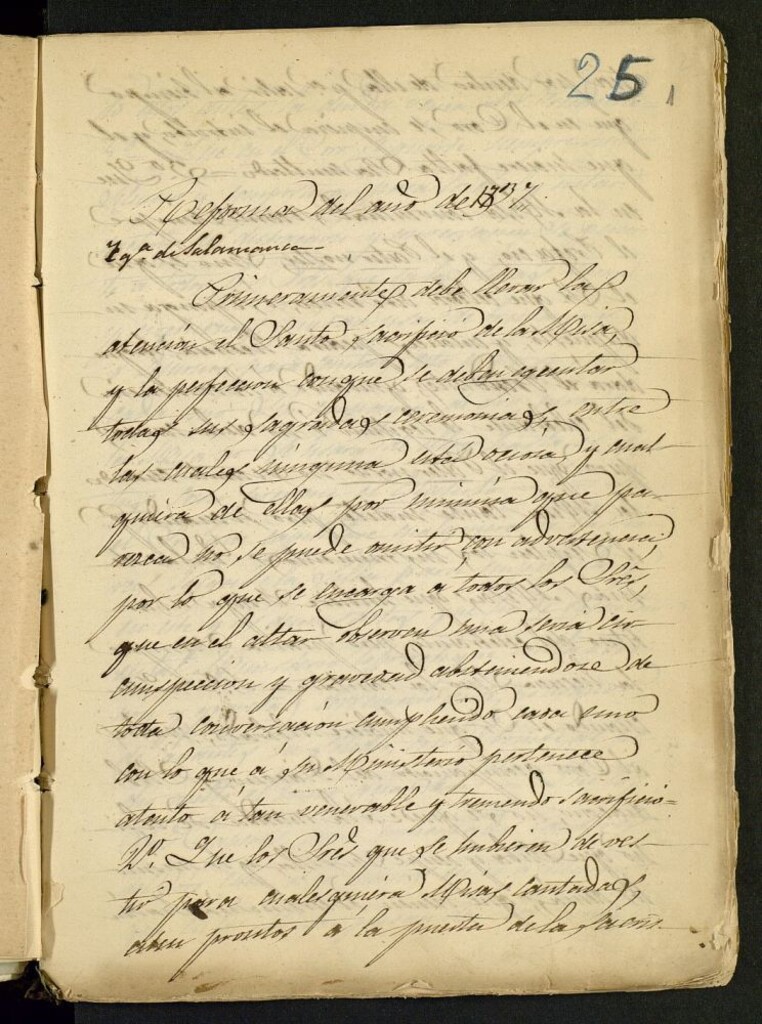 25
1
Reforma del año de 1737.
Yg.ª de Salamanca.
Primeramente debe llevar la
atención el Santo sacrificio de la Misa,
y la perfeccion conque se deben egecutar
todas sus sagradas ceremonias, entre
las cuales ninguna está ociosa, y cual-
quiera de ellas por minima que pa-
rezca no se puede omitir con advertencia,
por lo que se encarga á todos los Sres,
que en el altar observen una seria cir-
cunspeccion y gravedad absteniendose de
toda conversación cumpliendo cada uno
con lo que á su Ministerio pertenece
atento á tan venerable y tremendo sacrificio=
2º. Que los Sres que se hubieren de ves-
tir para cualesquiera Misas cantadas,
esten prontos á la puerta de la Sacris-